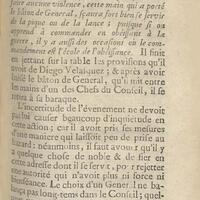 faire aucune violence, cette main qui a porté
le bâton de General, sçaura fort bien se servir
de la pique ou de la lance ; puisque si on
apprend à commander en obéissant à la
guerre, il y a aussi des occasions où le com-
mandement est l'école de l'obéissance. Il finit
en jettant sur la table les provisions qu'il
avoit de Diego Velasquez ; & aprés avoir
baisé le bâton de General, qu'il mit entre
les mains d'un des Chefs du Conseil, il se
retira à sa baraque.
L'incertitude de l'évenement ne devoit
pas lui causer beaucoup d'inquietude en
cette action ; car il avoit pris ses mesures
d'une maniere qui laissoit peu de prise au
hazard : neanmoins, il faut avoüer qu'il y a
quelque chose de noble & de fier en
cette adresse dont il se servit, pour rejetter
une autorité qui n'avoit plus ni force ni
bienséance. Le choix d'un General ne ba-
lança pas long-tems dans le Conseil ; quel-